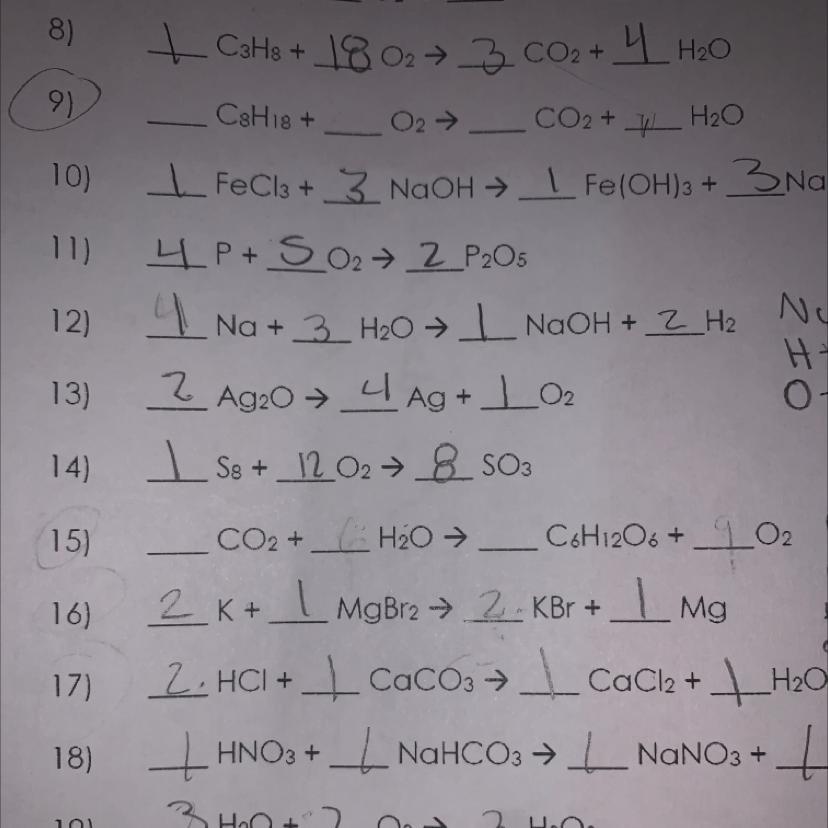 8) 1 C3H8 + 18 O2 → 3 CO2 + 4 H2O
9) ___ C8H18 + ___ O2 → ___ CO2 + ___ H2O
10) 1 FeCl3 + 3 NaOH → 1 Fe(OH)3 + 3 Na
11) 4 P + 5 O2 → 2 P2O5
12) 4 Na + 3 H2O → 1 NaOH + 2 H2
H
O
13) 2 Ag2O → 4 Ag + 1 O2
14) 1 S8 + 12 O2 → 8 SO3
15) ___ CO2 + 6 H2O → ___ C6H12O6 + 9 O2
16) 2 K + 1 MgBr2 → 2 KBr + 1 Mg
17) 2 HCl + 1 CaCO3 → 1 CaCl2 + 1 H2O
18) 1 HNO3 + 1 NaHCO3 → 1 NaNO3 + 1